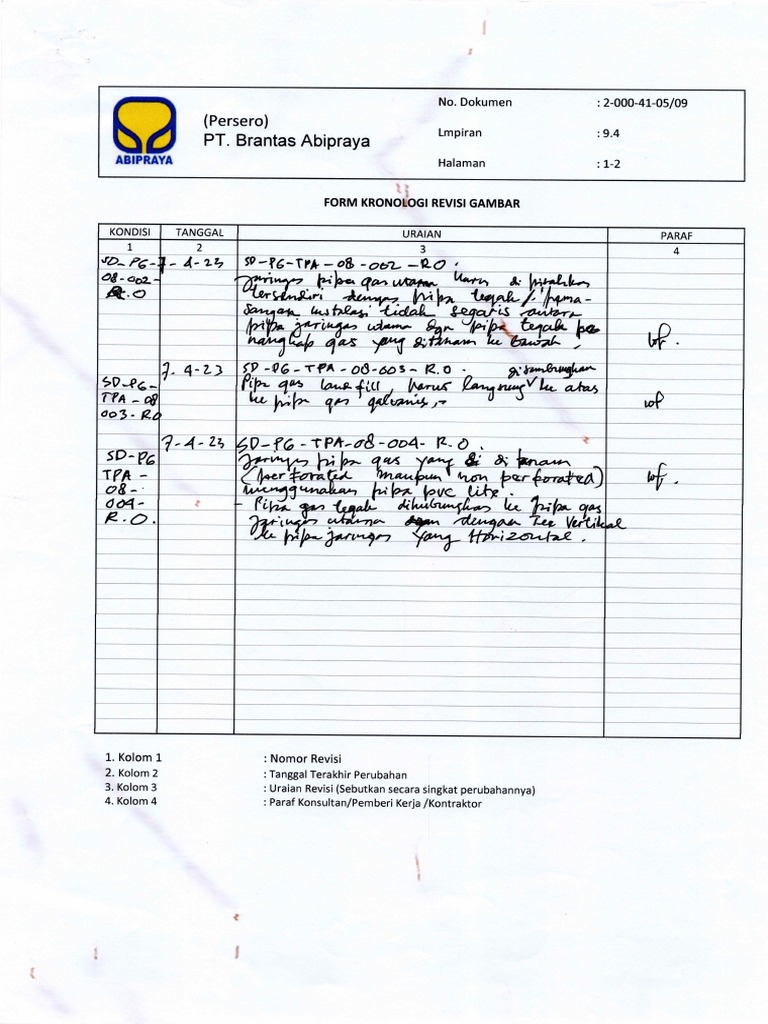 ABIPRAYA
(Persero)
PT. Brantas Abipraya
No. Dokumen : 2-000-41-05/09
Lmpiran : 9.4
Halaman : 1-2
FORM KRONOLOGI REVISI GAMBAR
KONDISI TANGGAL URAIAN PARAF
1 2 3 4
SD-PG- 7-4-23 SD-PG-TPA-08-002-R.O.
08-002- jaringan pipa gas utama harus di pisahkan
R.O tersendiri dengan pipa tegak/pema-
sangan instalasi tidak segaris antara
pipa jaringan utama dgn pipa tegak pe
nangkap gas yang ditanam ke bawah.
7.4-23 SD-PG-TPA-08-003-R.O. disambungkan
SD-PG- Pipa gas landfill, harus langsung ke atas
TPA-08 ke pipa gas galvanis,-
003-RO
7-4-23 SD-PG-TPA-08-004-R.O.
SD-PG jaringan pipa gas yang di tanam
TPA- (perforated maupun non perforated)
08- menggunakan pipa pvc lite.
004- - Pipa gas tegak dihubungkan ke pipa gas
R.O. jaringan utama dengan tee vertikal
ke pipa jaringan yang Horizontal.
1. Kolom 1 : Nomor Revisi
2. Kolom 2 : Tanggal Terakhir Perubahan
3. Kolom 3 : Uraian Revisi (Sebutkan secara singkat perubahannya)
4. Kolom 4 : Paraf Konsultan/Pemberi Kerja /Kontraktor